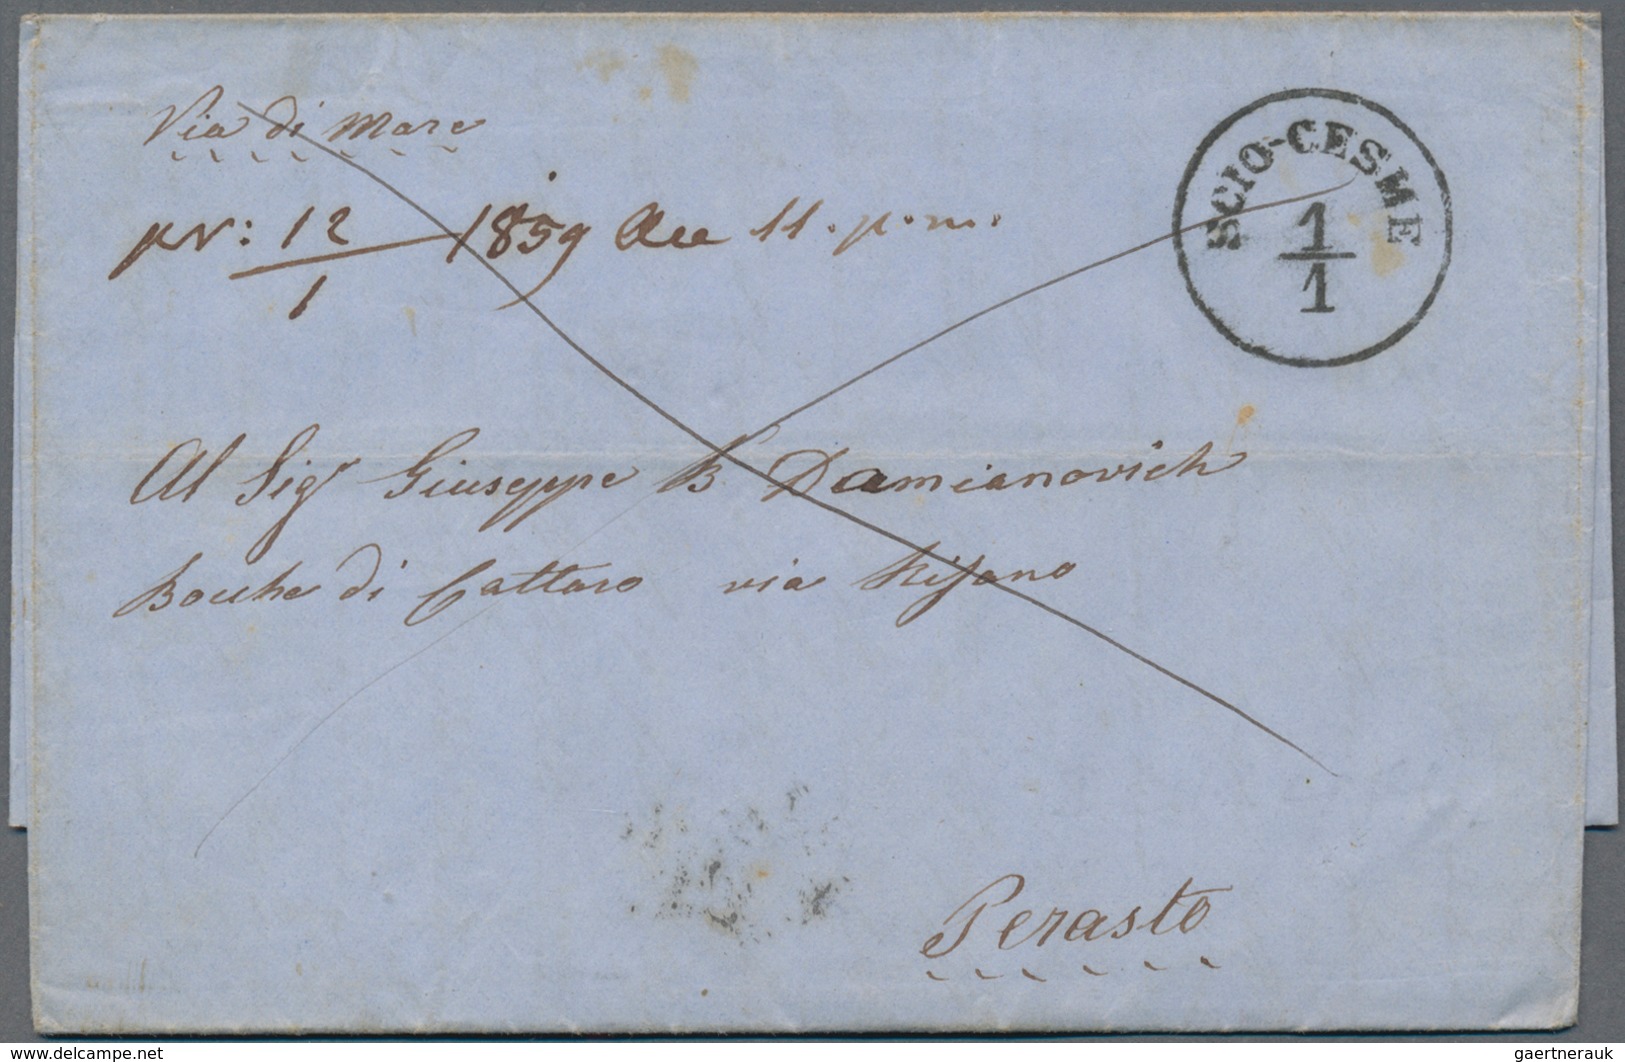 Via di Mare
SCIO-CESME
1
1
pr: 12 1859 Ore 11. p. m.
1
Al Sigr Giuseppe B. Damianovich
Bocche di Cattaro via Risano
Perasto
www.delcampe.net
gaertnerauk